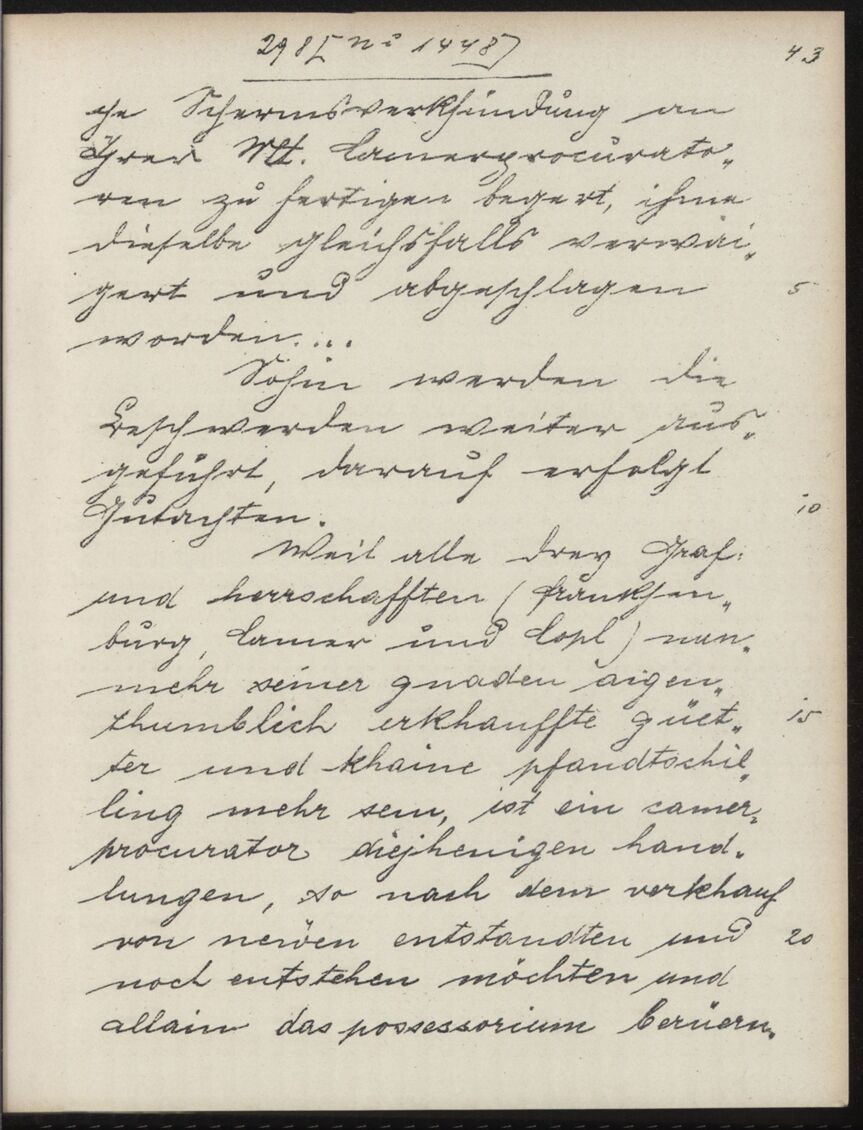 298 [N° 1448] 43
che Schermsverkhündung an
Ihrer Mt. Camerprocurato„
ren zu fertigen begert, ihme
dieselbe gleichsfalls verwai„
gert und abgeschlagen 5
worden....
Sohin werden die
Beschwerden weiter aus„
geführt, darauf erfolgt
Gutachten. 10
Weil alle drey Graf:
und herrschafften (Frankhen„
burg, Camer und Cogl) nun„
mehr seiner gnaden aigen„
thumblich erkhauffte güet„ 15
ter und khaine pfandtschil„
ling mehr sein, ist ein camer„
procurator diejhenigen hand„
lungen, so nach dem verkhauf
von neüen entstandten und 20
noch entstehen möchten und
allain das possessorium berüern„